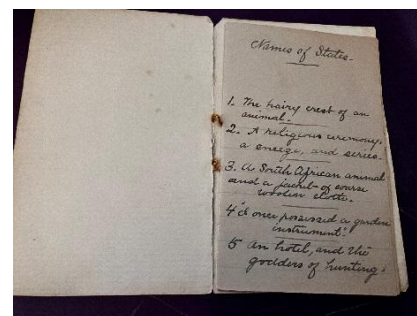 Names of States.
1. The hairy crest of an
animal.
2. A religious ceremony,
a sneeze, and series.
3. A South African animal
and a jacket of coarse
woolen cloth.
4 "I once possessed a garden
instrument".
5 An hotel, and the
goddess of hunting.